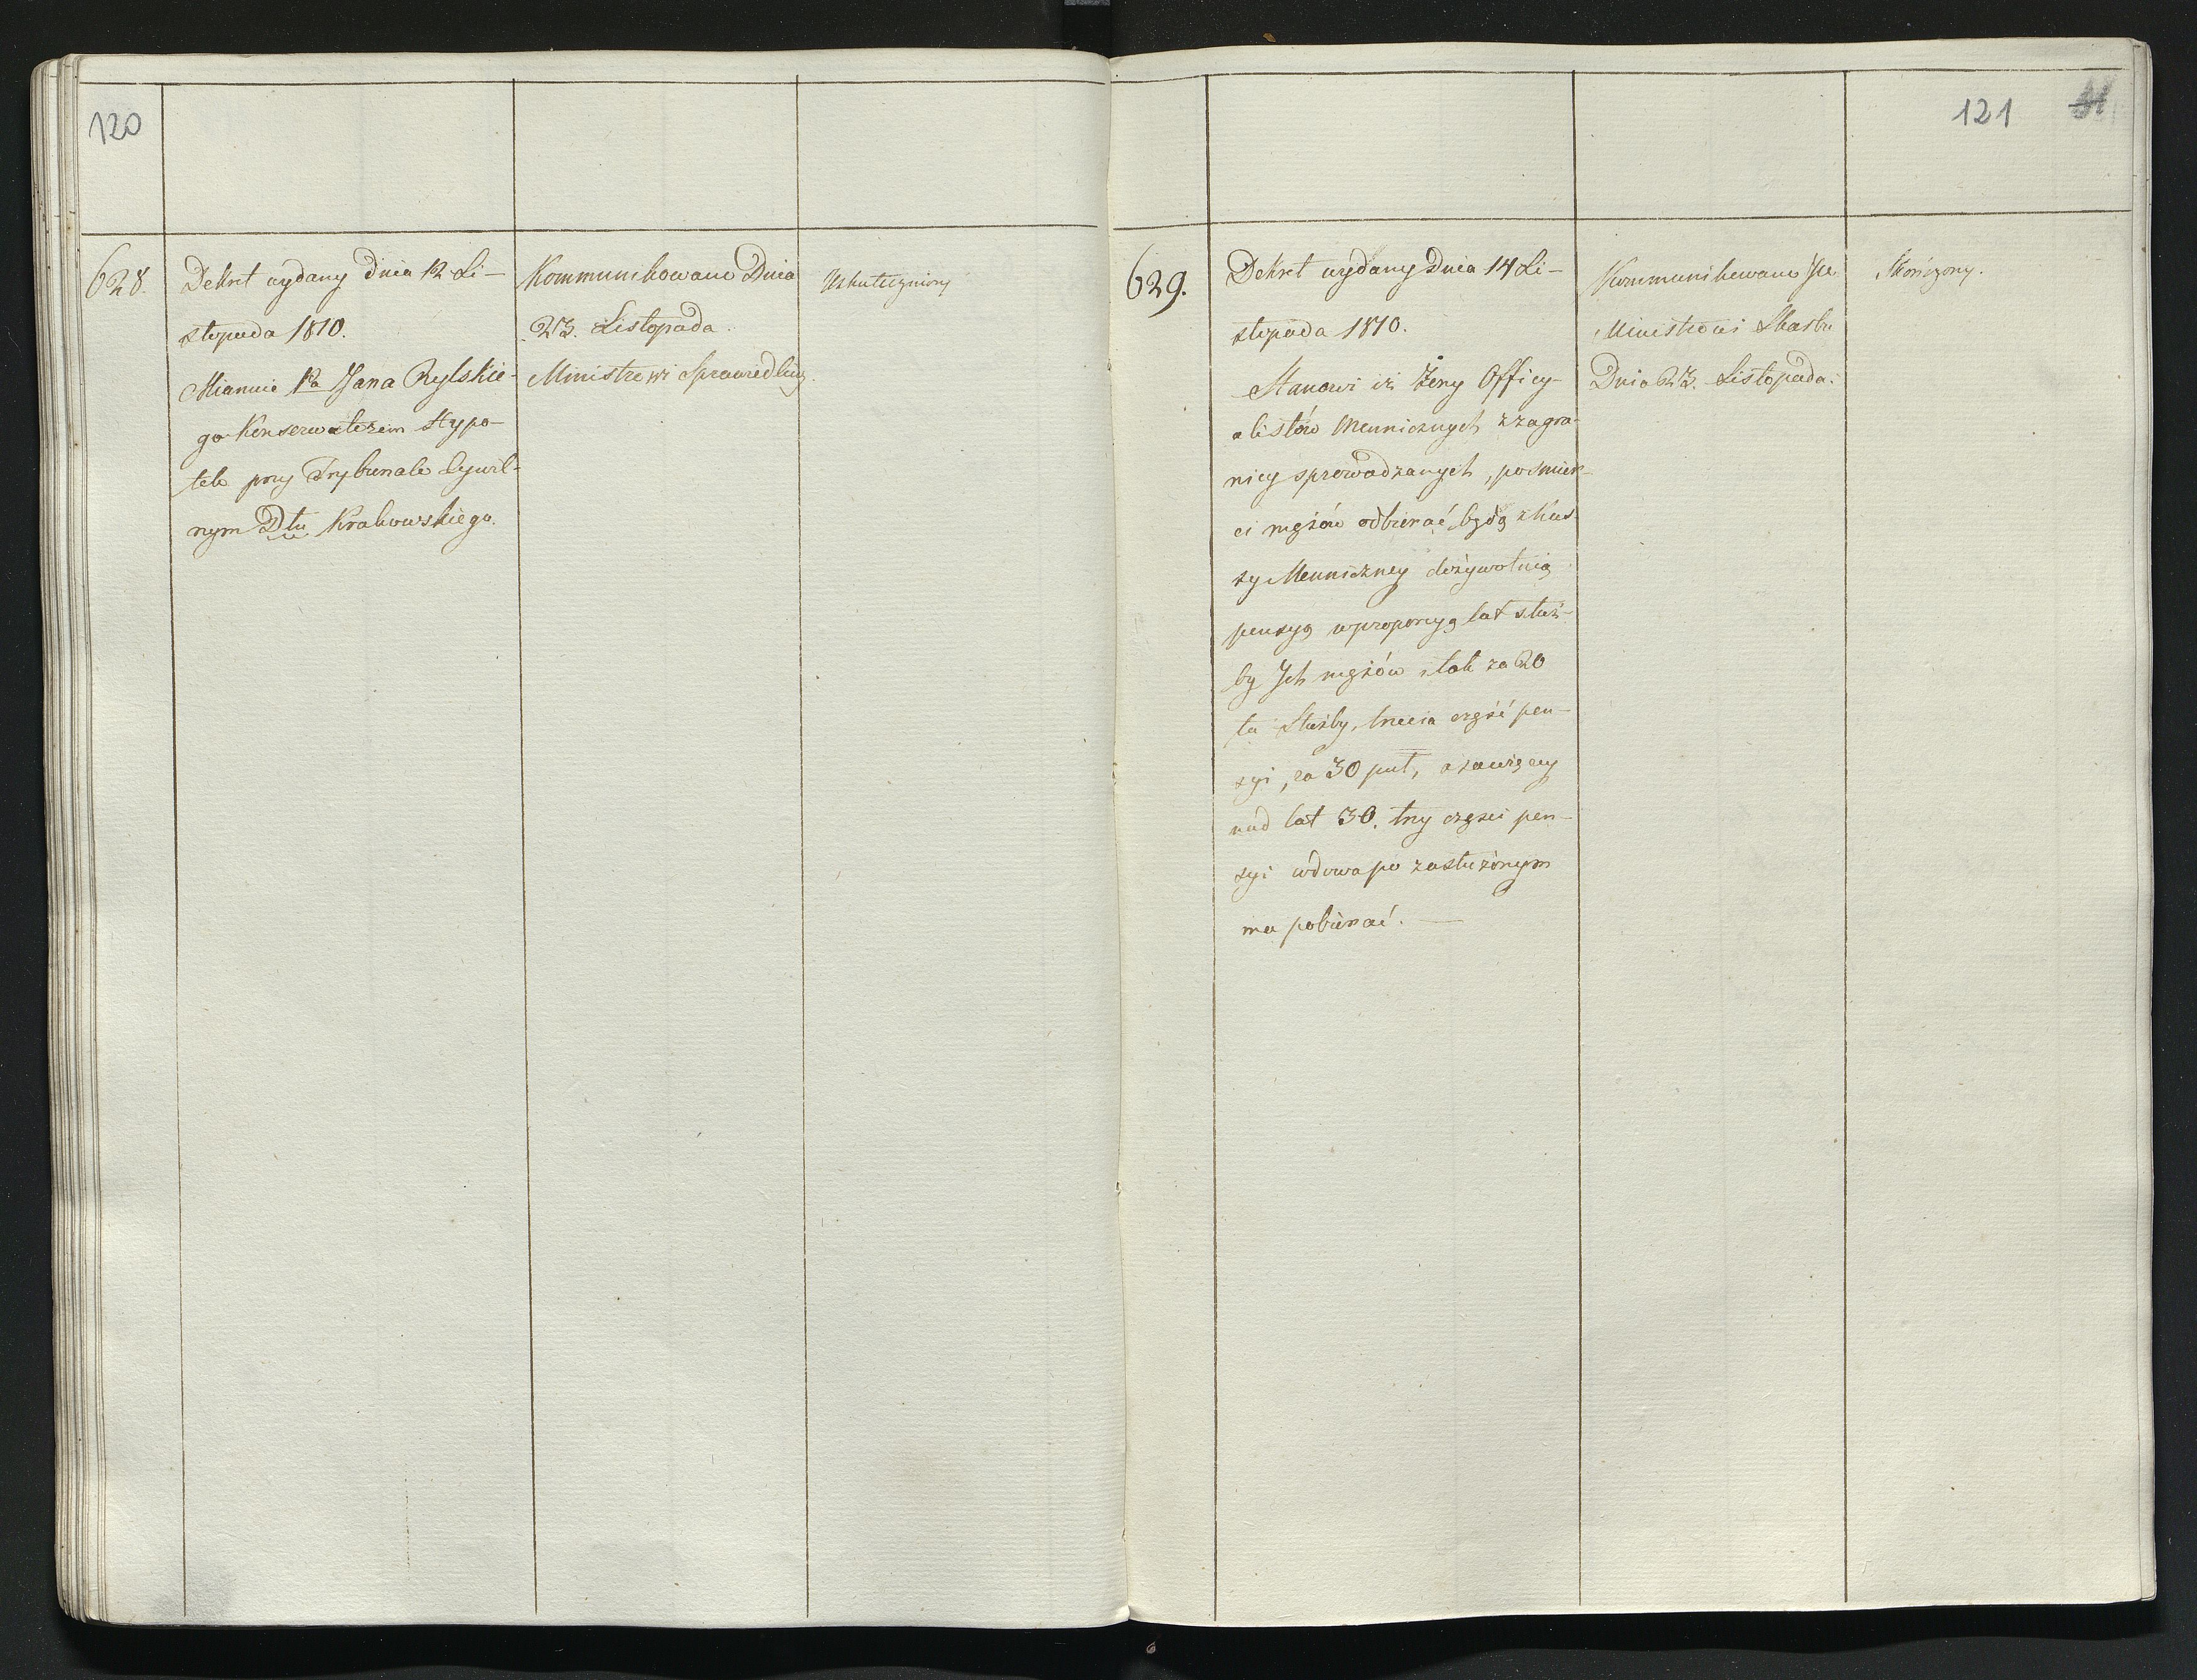 120
628.
Dekret wydany dnia 12 Li-
stopada 1810.
Mianuie Pa Jana Rylskie-
go Konserwatorem Hypo-
tek przy Trybunale Cywil-
nym Dtu Krakowskiego.
Kommunikowano Dnia
23. Listopada.
Ministrowi Sprawiedliwoś.
Uskuteczniony
121
629.
Dekret wydany Dnia 14 Li-
stopada 1810.
Stanowi iż Żony Officy-
alistów Mennicznych z zagra-
nicy sprowadzanych, po śmier-
ci mężów odbierać będą z Kas-
sy Menniczney dożywotnią
pensyą w proporcyą lat służ-
by Ich mężów i tak za 20
tu Służby, trzecia część pen-
syi, za 30 puł, a zawięcey
nad lat 30. trzy części pen-
syi wdowa po zasłużonym
ma pobierać. —
Kommunikowano
Ministrowi Skarbu
Dnia 23. Listopada.
Skończony.